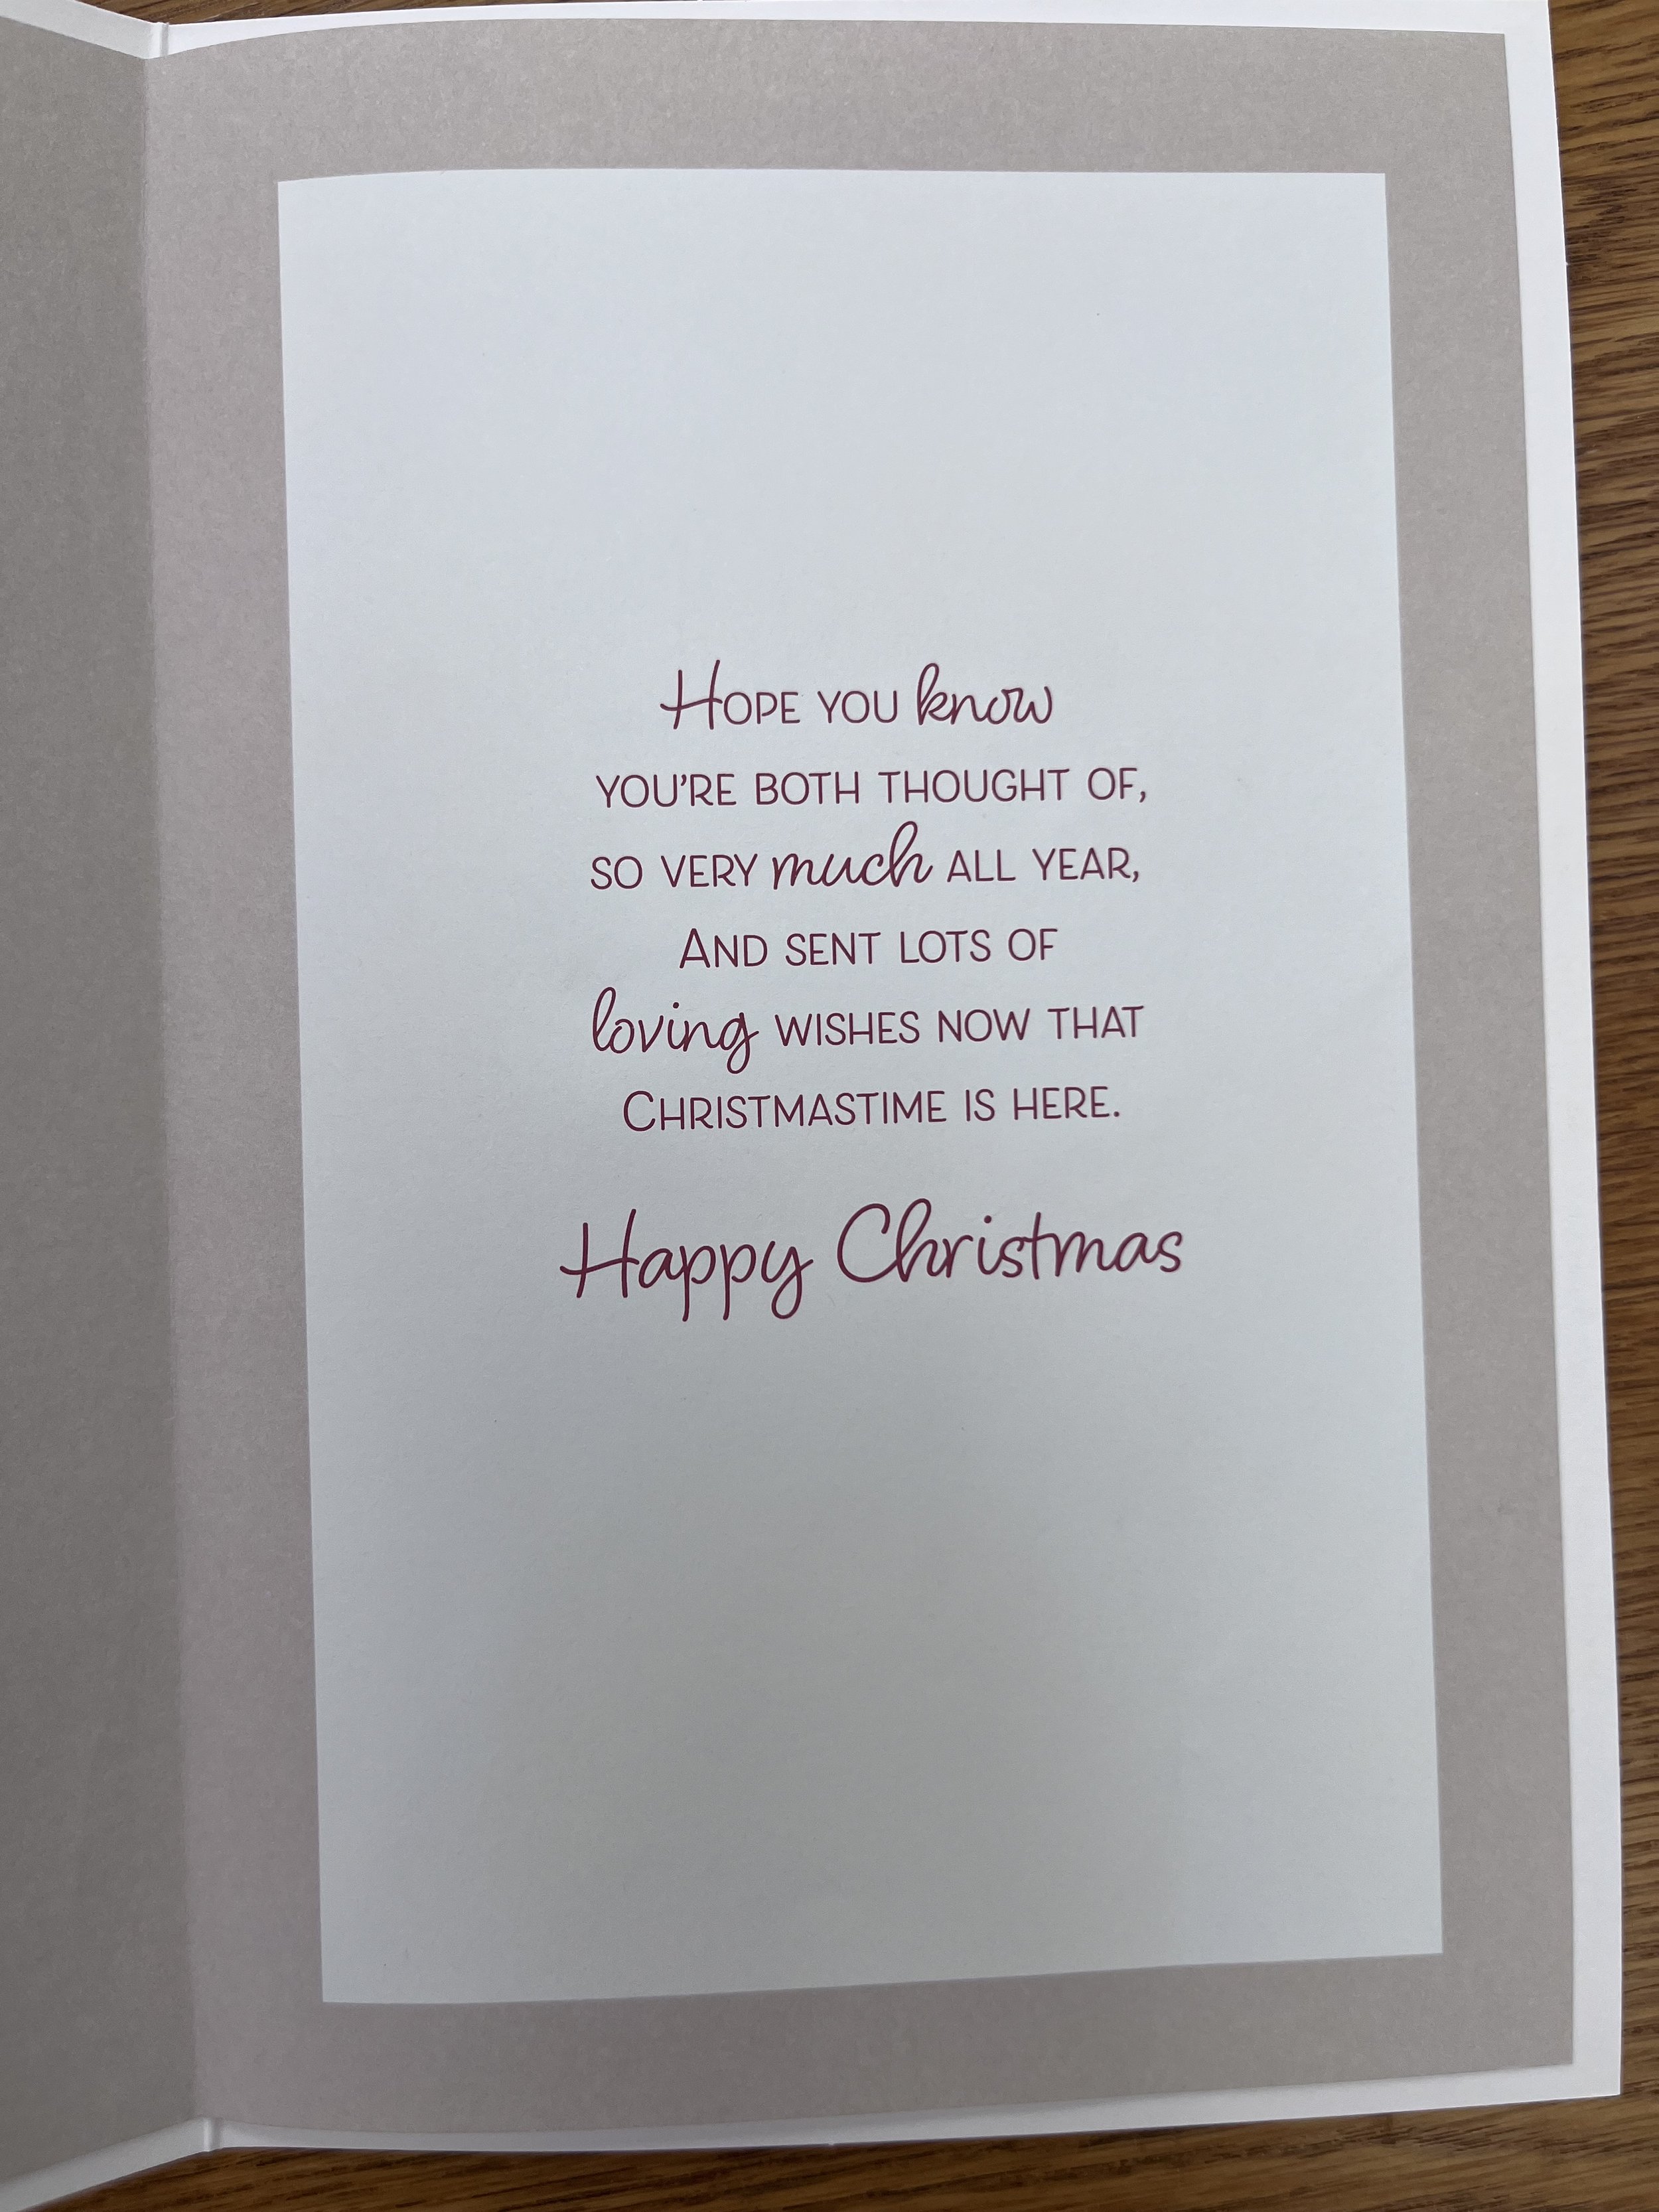 Hope you know
you're both thought of,
so very much all year,
And sent lots of
loving wishes now that
Christmastime is here.
Happy Christmas